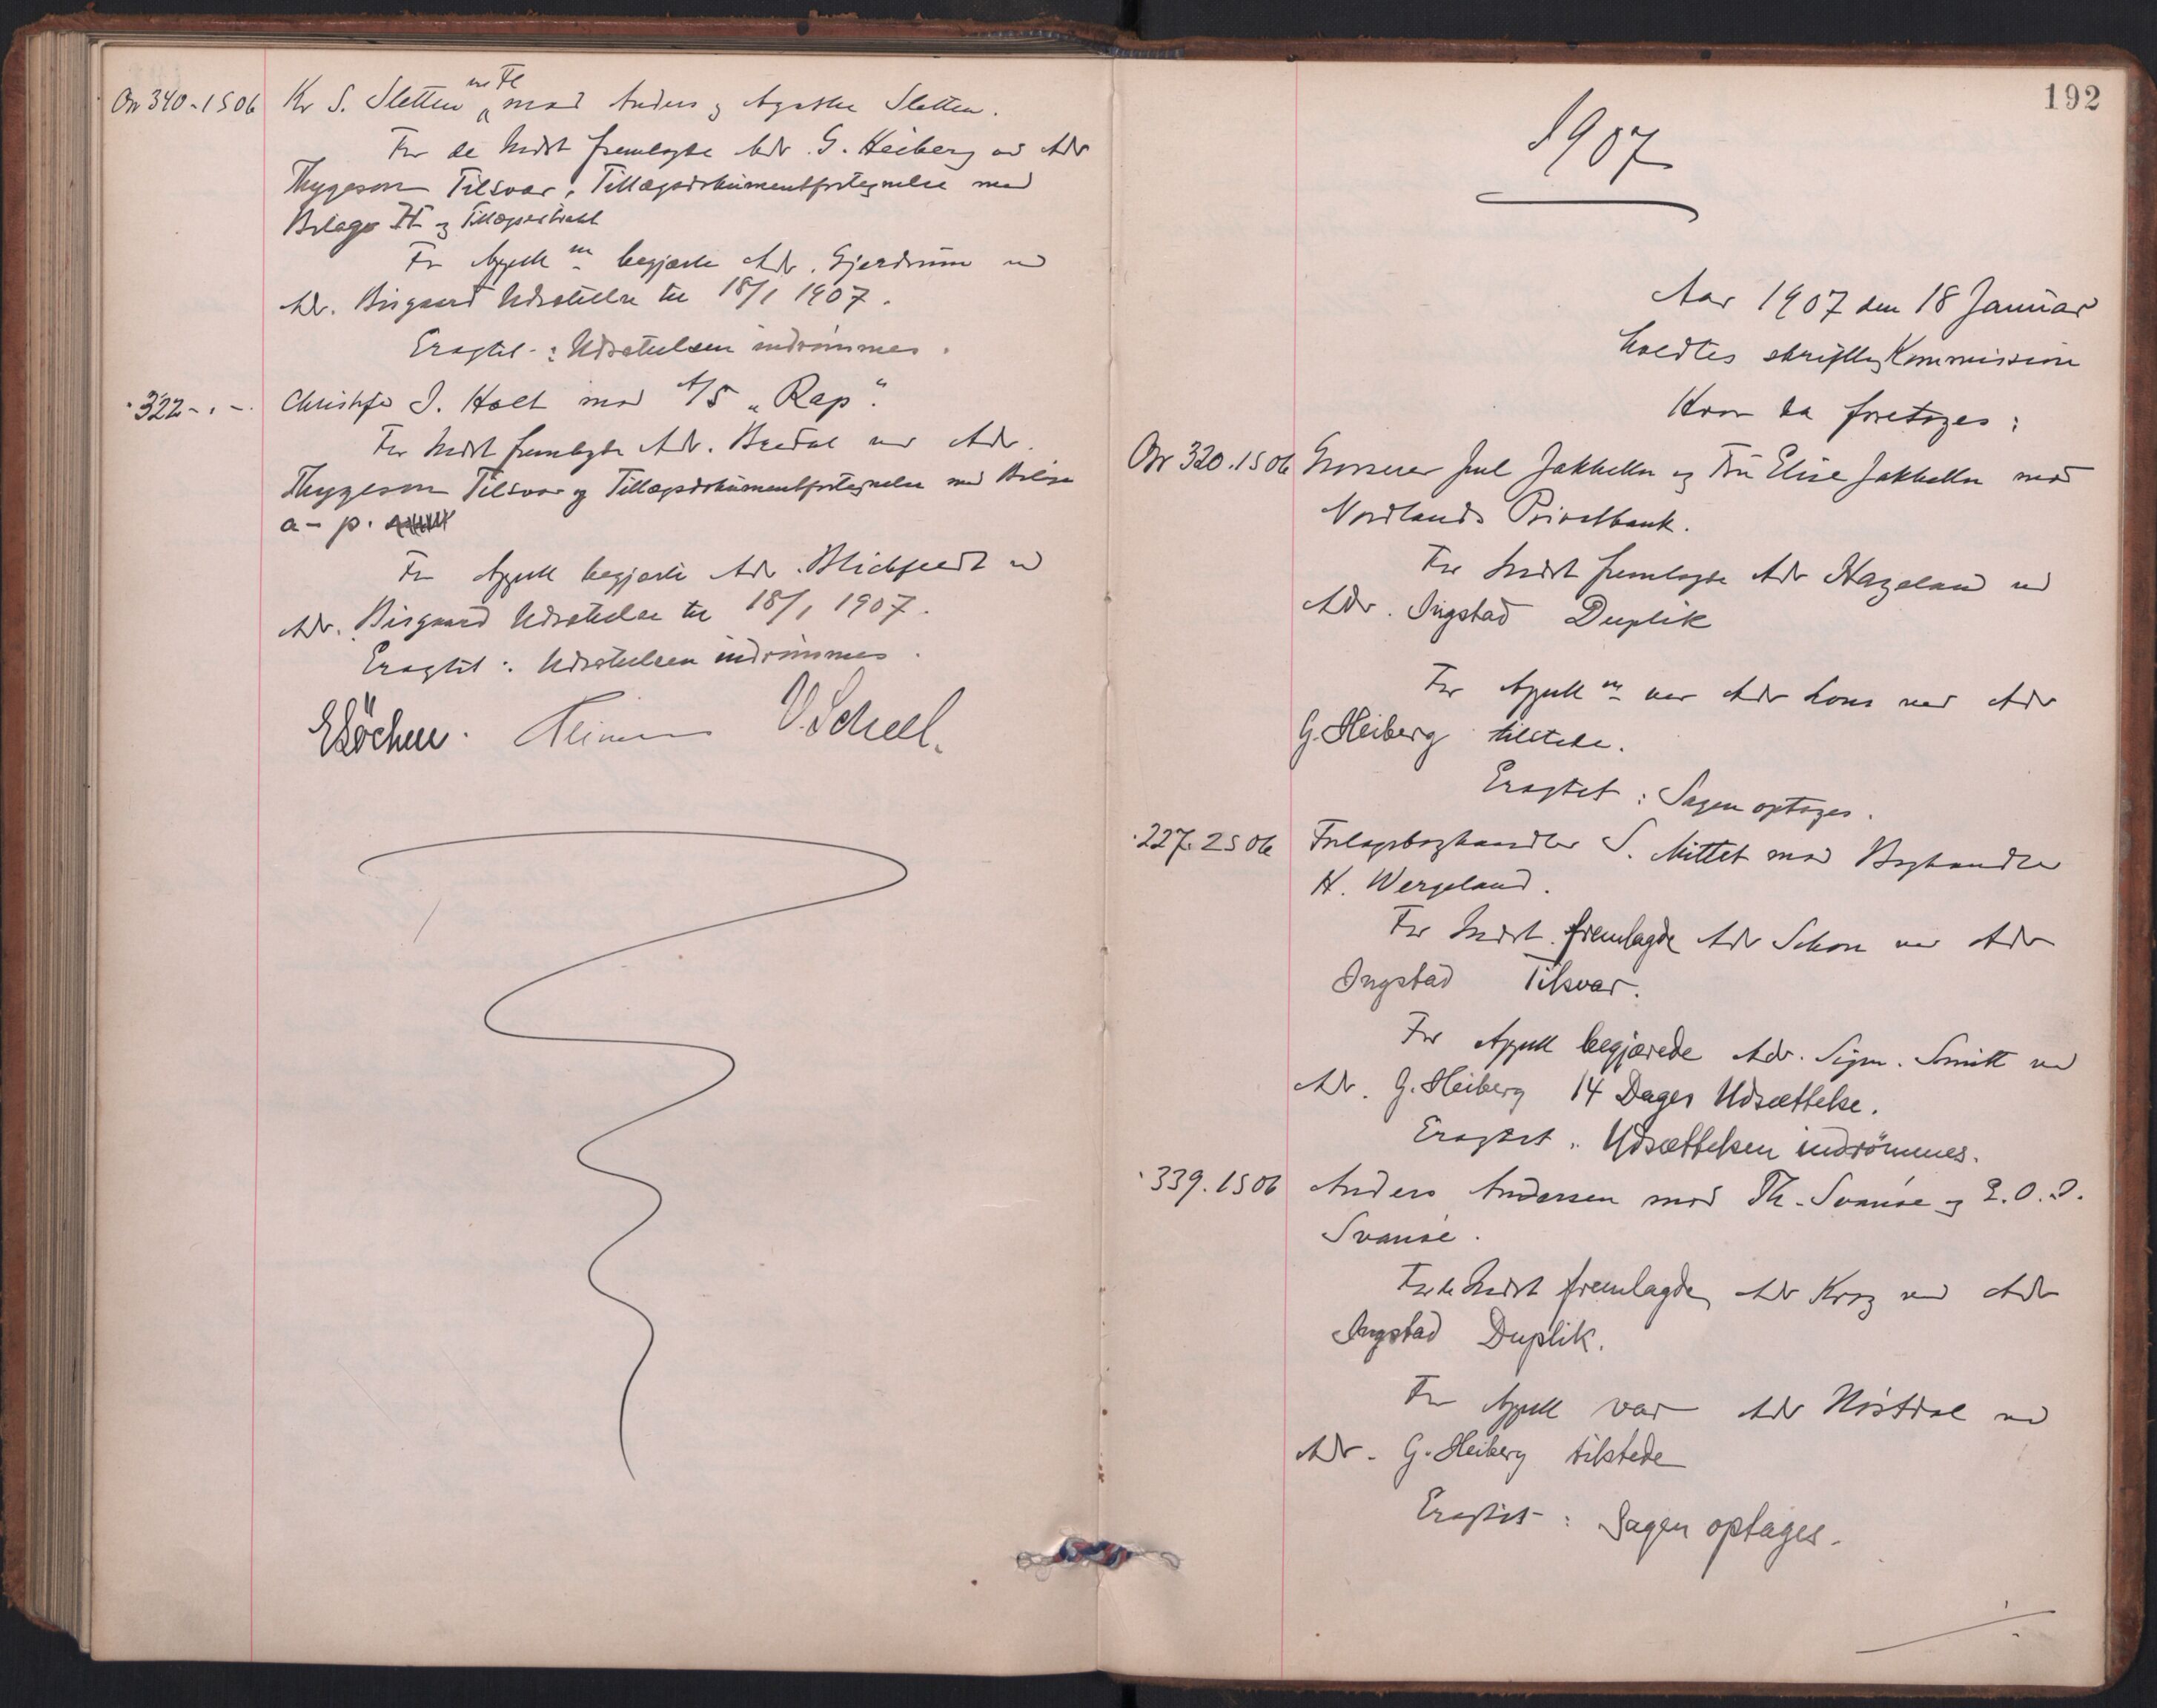 No 340-1 S 06 Kr S. Sletten m Fl mod Anders og Agathe Sletten.
For de Indst fremlagde Adv. G. Heiberg ved Adv
Thygeson Tilsvar, Tillægsdokumentfortegnelse med
Bilage H og Tillægsextrakt
For Appell m begjærte Adv. Gjerdrum ved
Adv. Bisgaard Udsættelse til 18/1 1907.
Eragtet: Udsættelsen indrømmes.
322 - . - . Christofer I. Holt mod A/S "Rap".
For Indst fremlagde Adv. Bredal ved Adv.
Thygeson Tilsvar og Tillægsdokumentfortegnelse med Bilage
a - p.
For Appell begjærte Adv. Blichfeldt ved
Adv. Bisgaard Udsættelse til 18/1 1907.
Eragtet: Udsættelsen indrømmes.
V. Scheel.
192
1907
Aar 1907 den 18 Januar
holdtes skriftlig Kommission
Hvor da foretoges:
No 320.1 S 06 Grosserer Juul Jakhelln og Fru Elise Jakhelln mod
Nordlands Privatbank.
For Indst fremlagde Adv Hazeland ved
Adv. Ingstad Duplik
For Appell m var Adv Lous ved Adv
G. Heiberg tilstede.
Eragtet: Sagen optages.
227. 2 S 06 Forlagsboghandler S. Mittet mod Boghandler
H. Wergeland.
For Indst. fremlagde Adv Schou ved Adv
Ingstad Tilsvar.
For Appell begjærede Adv. Sigm. Smitt ved
Adv. G. Heiberg 14 Dages Udsættelse.
Eragtet: Udsættelsen indrömmes.
339. 1 S 06 Anders Andersen mod Th. Svanøe og
Svanøe.
For de Indst fremlagde Adv Krog ved Adv
Ingstad Duplik.
For Appell var Adv ved
Adv. G. Heiberg tilstede
Eragtet: Sagen optages.